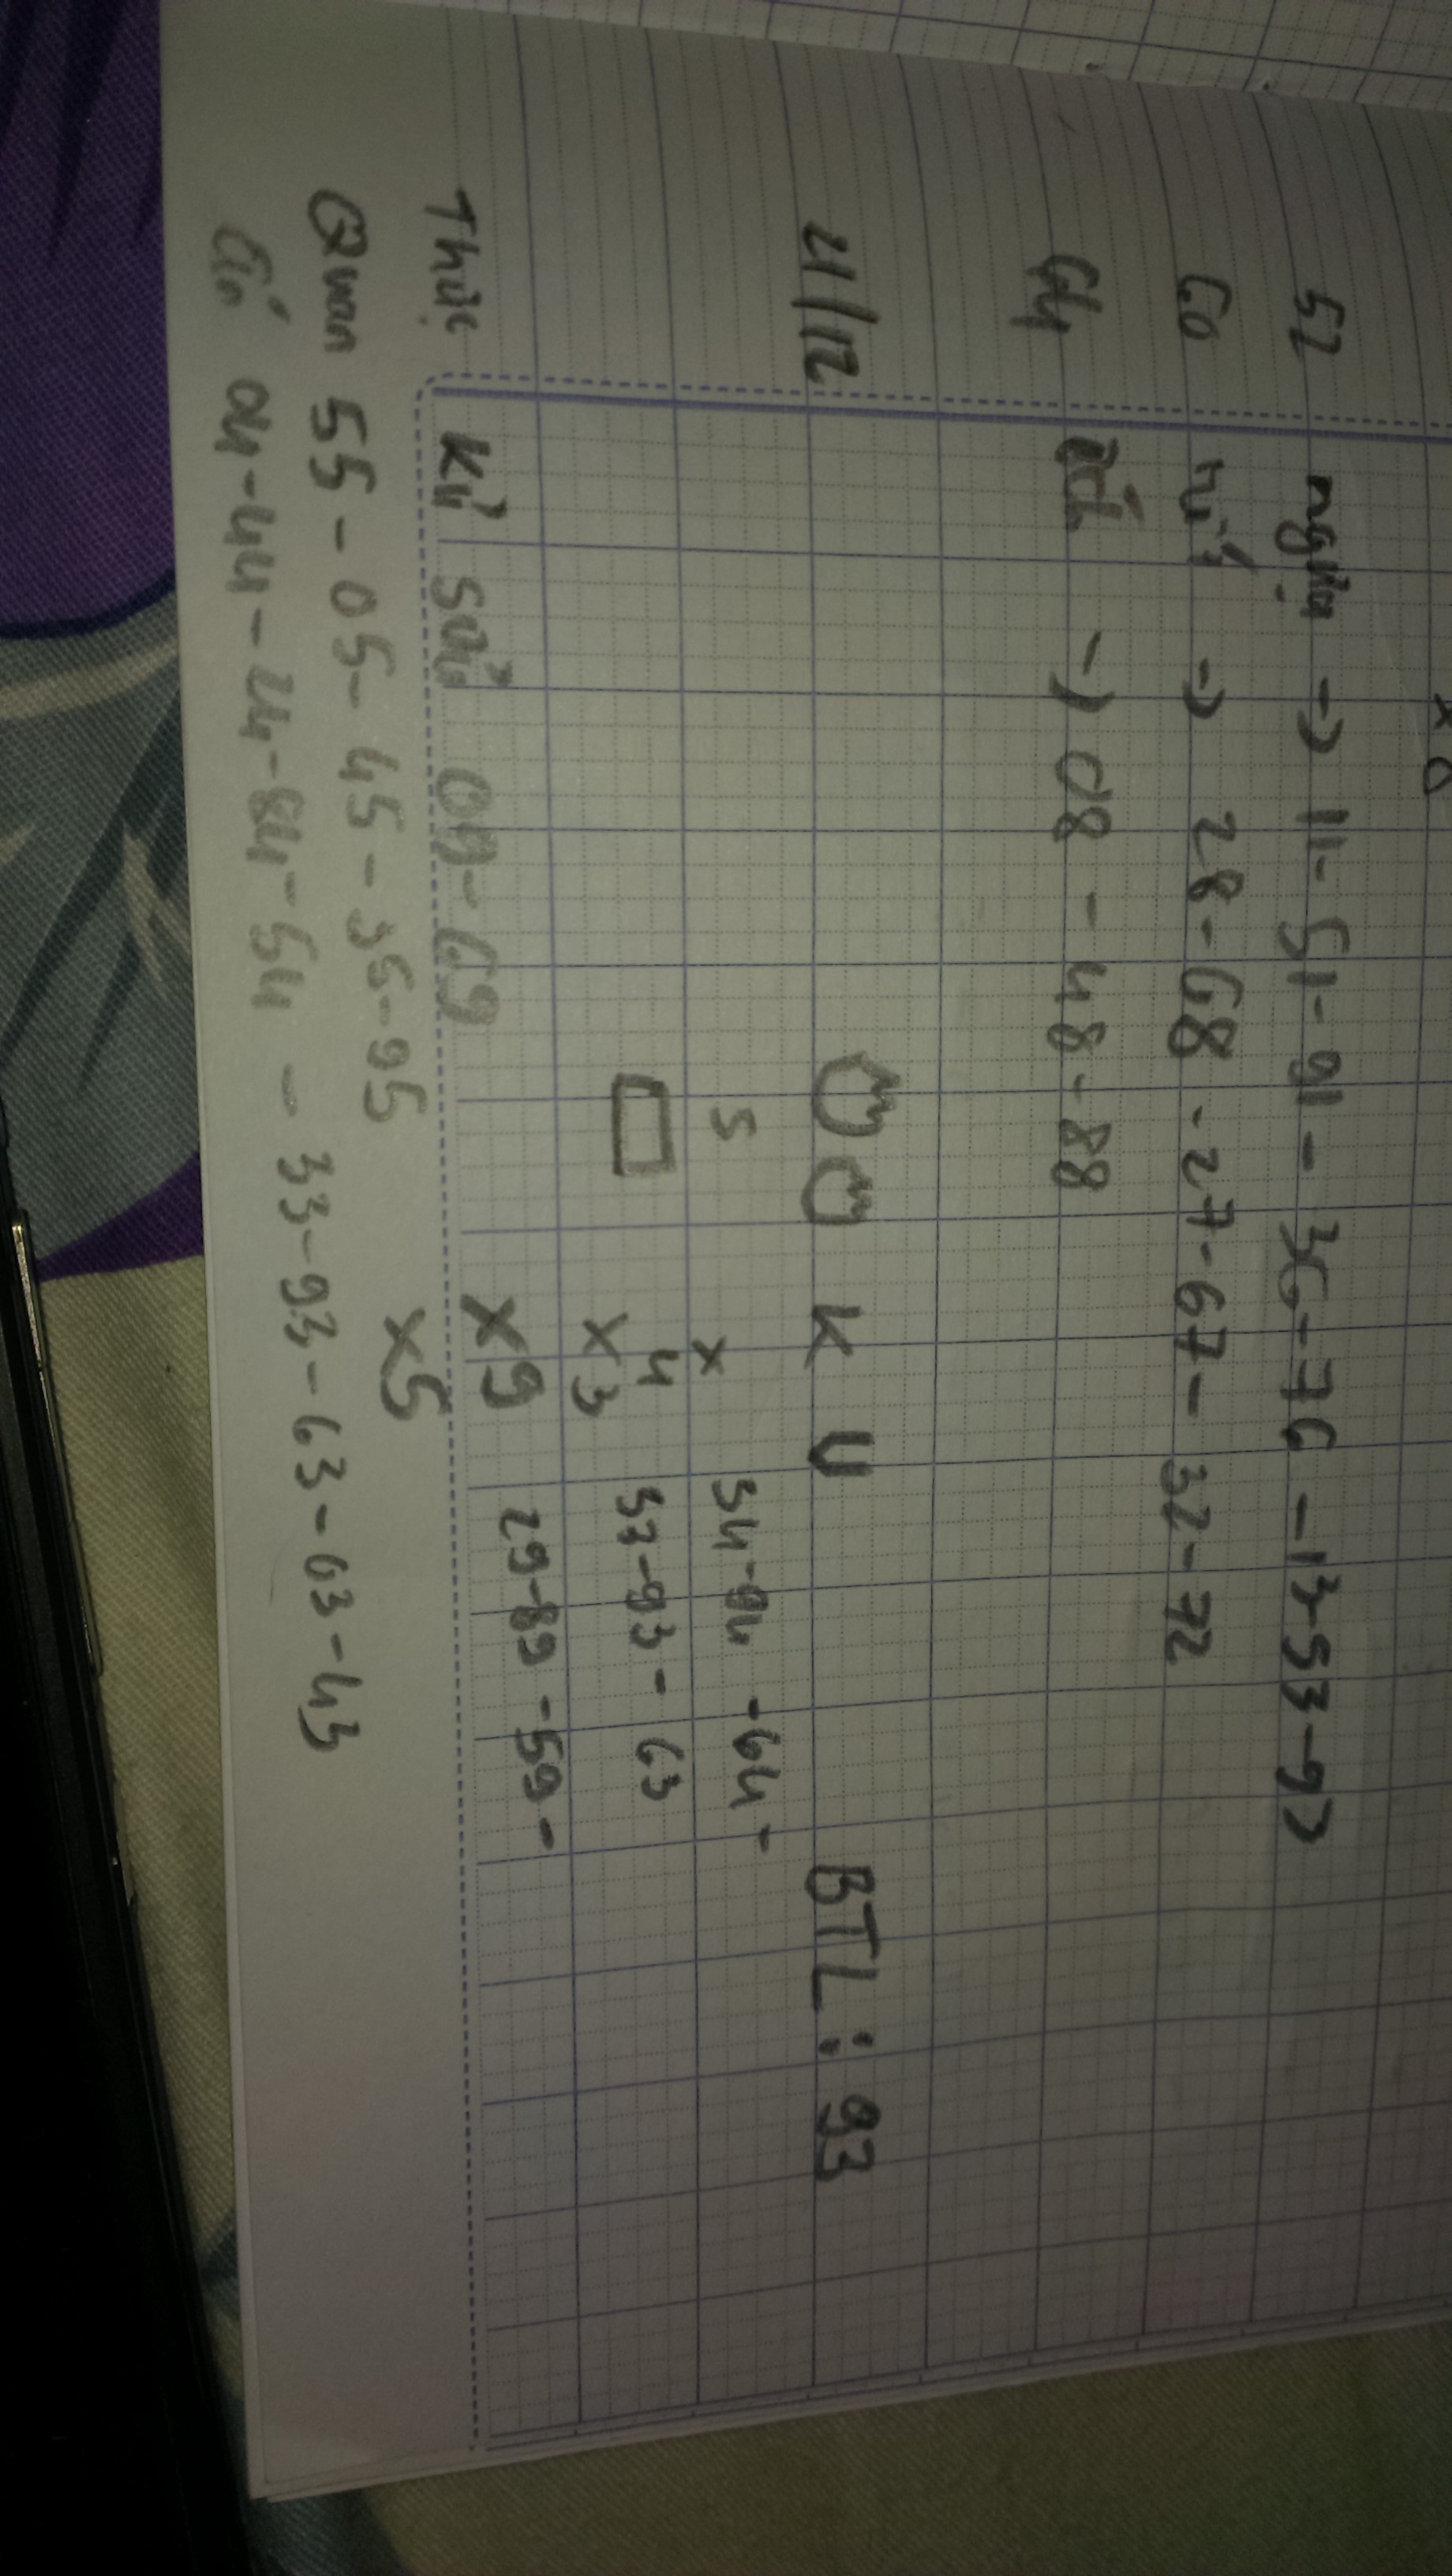 x 0
52 ngựa -> 11-51-91 - 36-76 - 13-53-93
60 -> 28-68-27-67-32-72
64 ếch -> 08-48-88
4/12 K U BTL: 93
5 x 34-94-64-
4
x3 33-93-63
x9 29-89-59-
Thức Kỉ sửu 09-69
x5
Quan 55-05-45-35-95
04-44-24-84-54 - 33-93-63-03-43